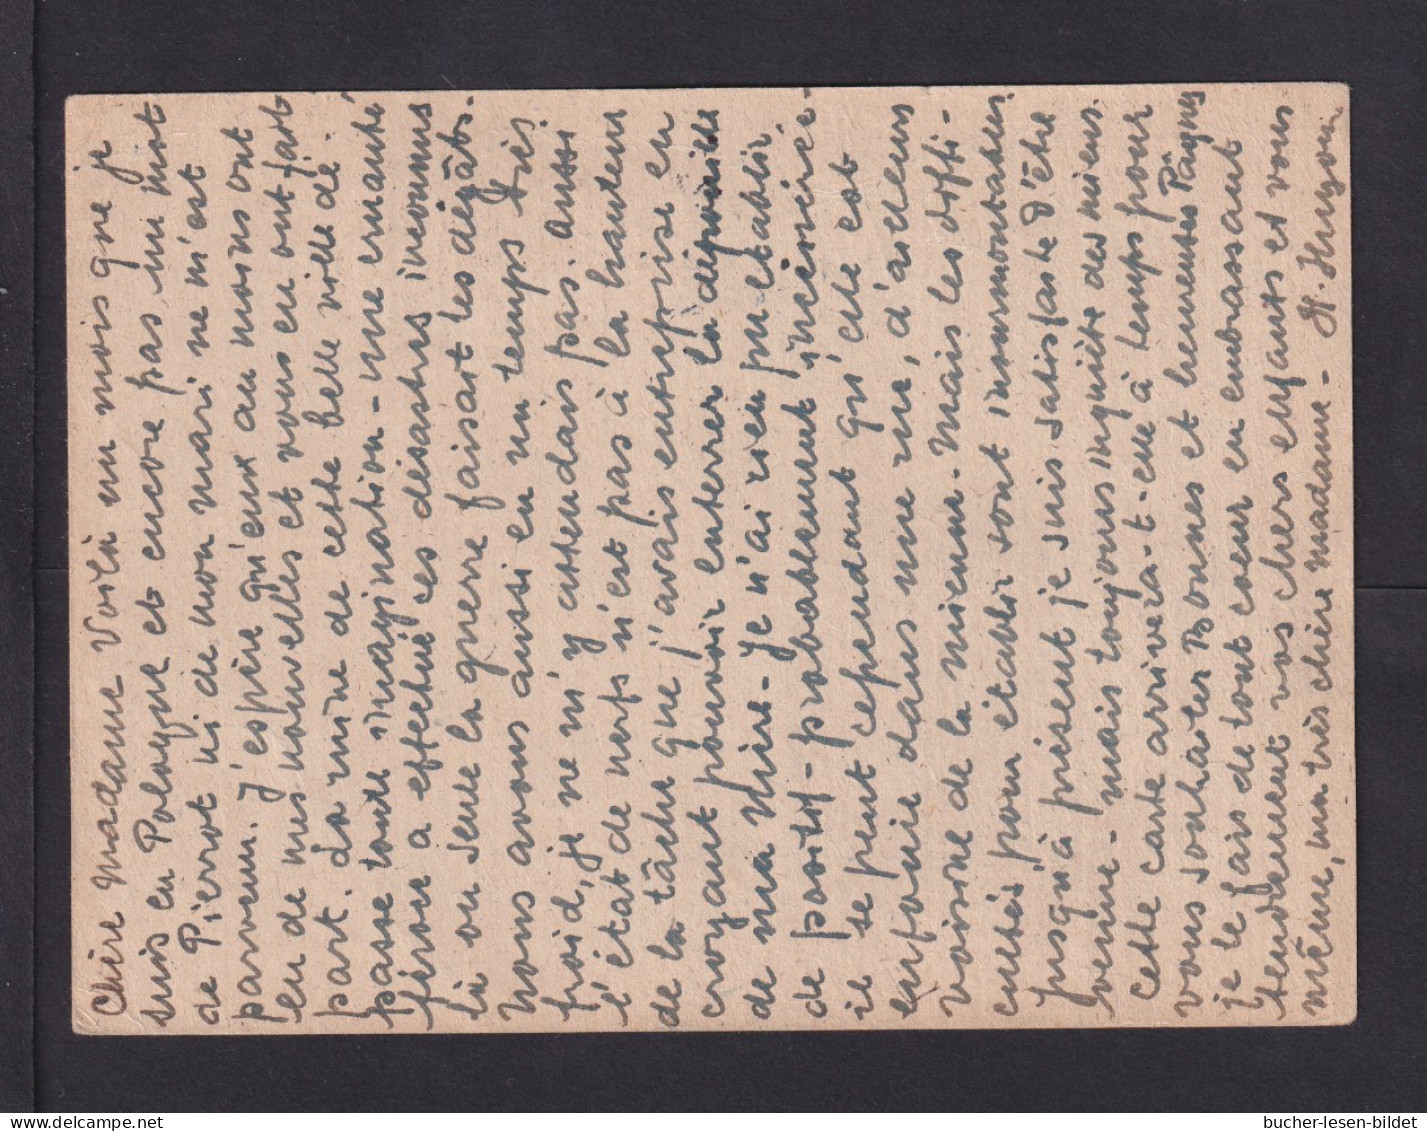 Chère Madame Voilà un mois que je
suis en Pologne et encore pas un mot
de Pierrot ni de mon mari ne m'est
parvenu. J'espère qu'eux au moins ont
eu de mes nouvelles et vous en ont fait
part. La ruine de cette belle ville dé-
passe toute imagination - une cruauté
féroce a effectué ces désastres inconnus
là où seule la guerre faisait les dégâts.
Nous avons aussi eu un temps très
froid, je ne m'y attendais pas. Aussi
l'état de nerfs n'est pas à la hauteur
de la tâche que j'avais entreprise en
croyant pouvoir enterrer la dépouille
de ma Mère - Je n'ai rien pu établir
de positif - probablement incinérée -
il se peut cependant qu'elle est
enfouie dans une rue, d'ailleurs
voisine de la mienne. Mais les diffi-
cultés pour établir sont insurmontables.
Jusqu'à présent je suis satisfaite d'être
venue - mais toujours inquiète des miens.
Cette carte arrivera-t-elle à temps pour
vous souhaiter Bonnes et heureuses Pâques
je le fais de tout coeur en embrassant
tendrement vos chers enfants et vous
même, ma très chère madame - H. Herzon
bucher-lesen-bildet